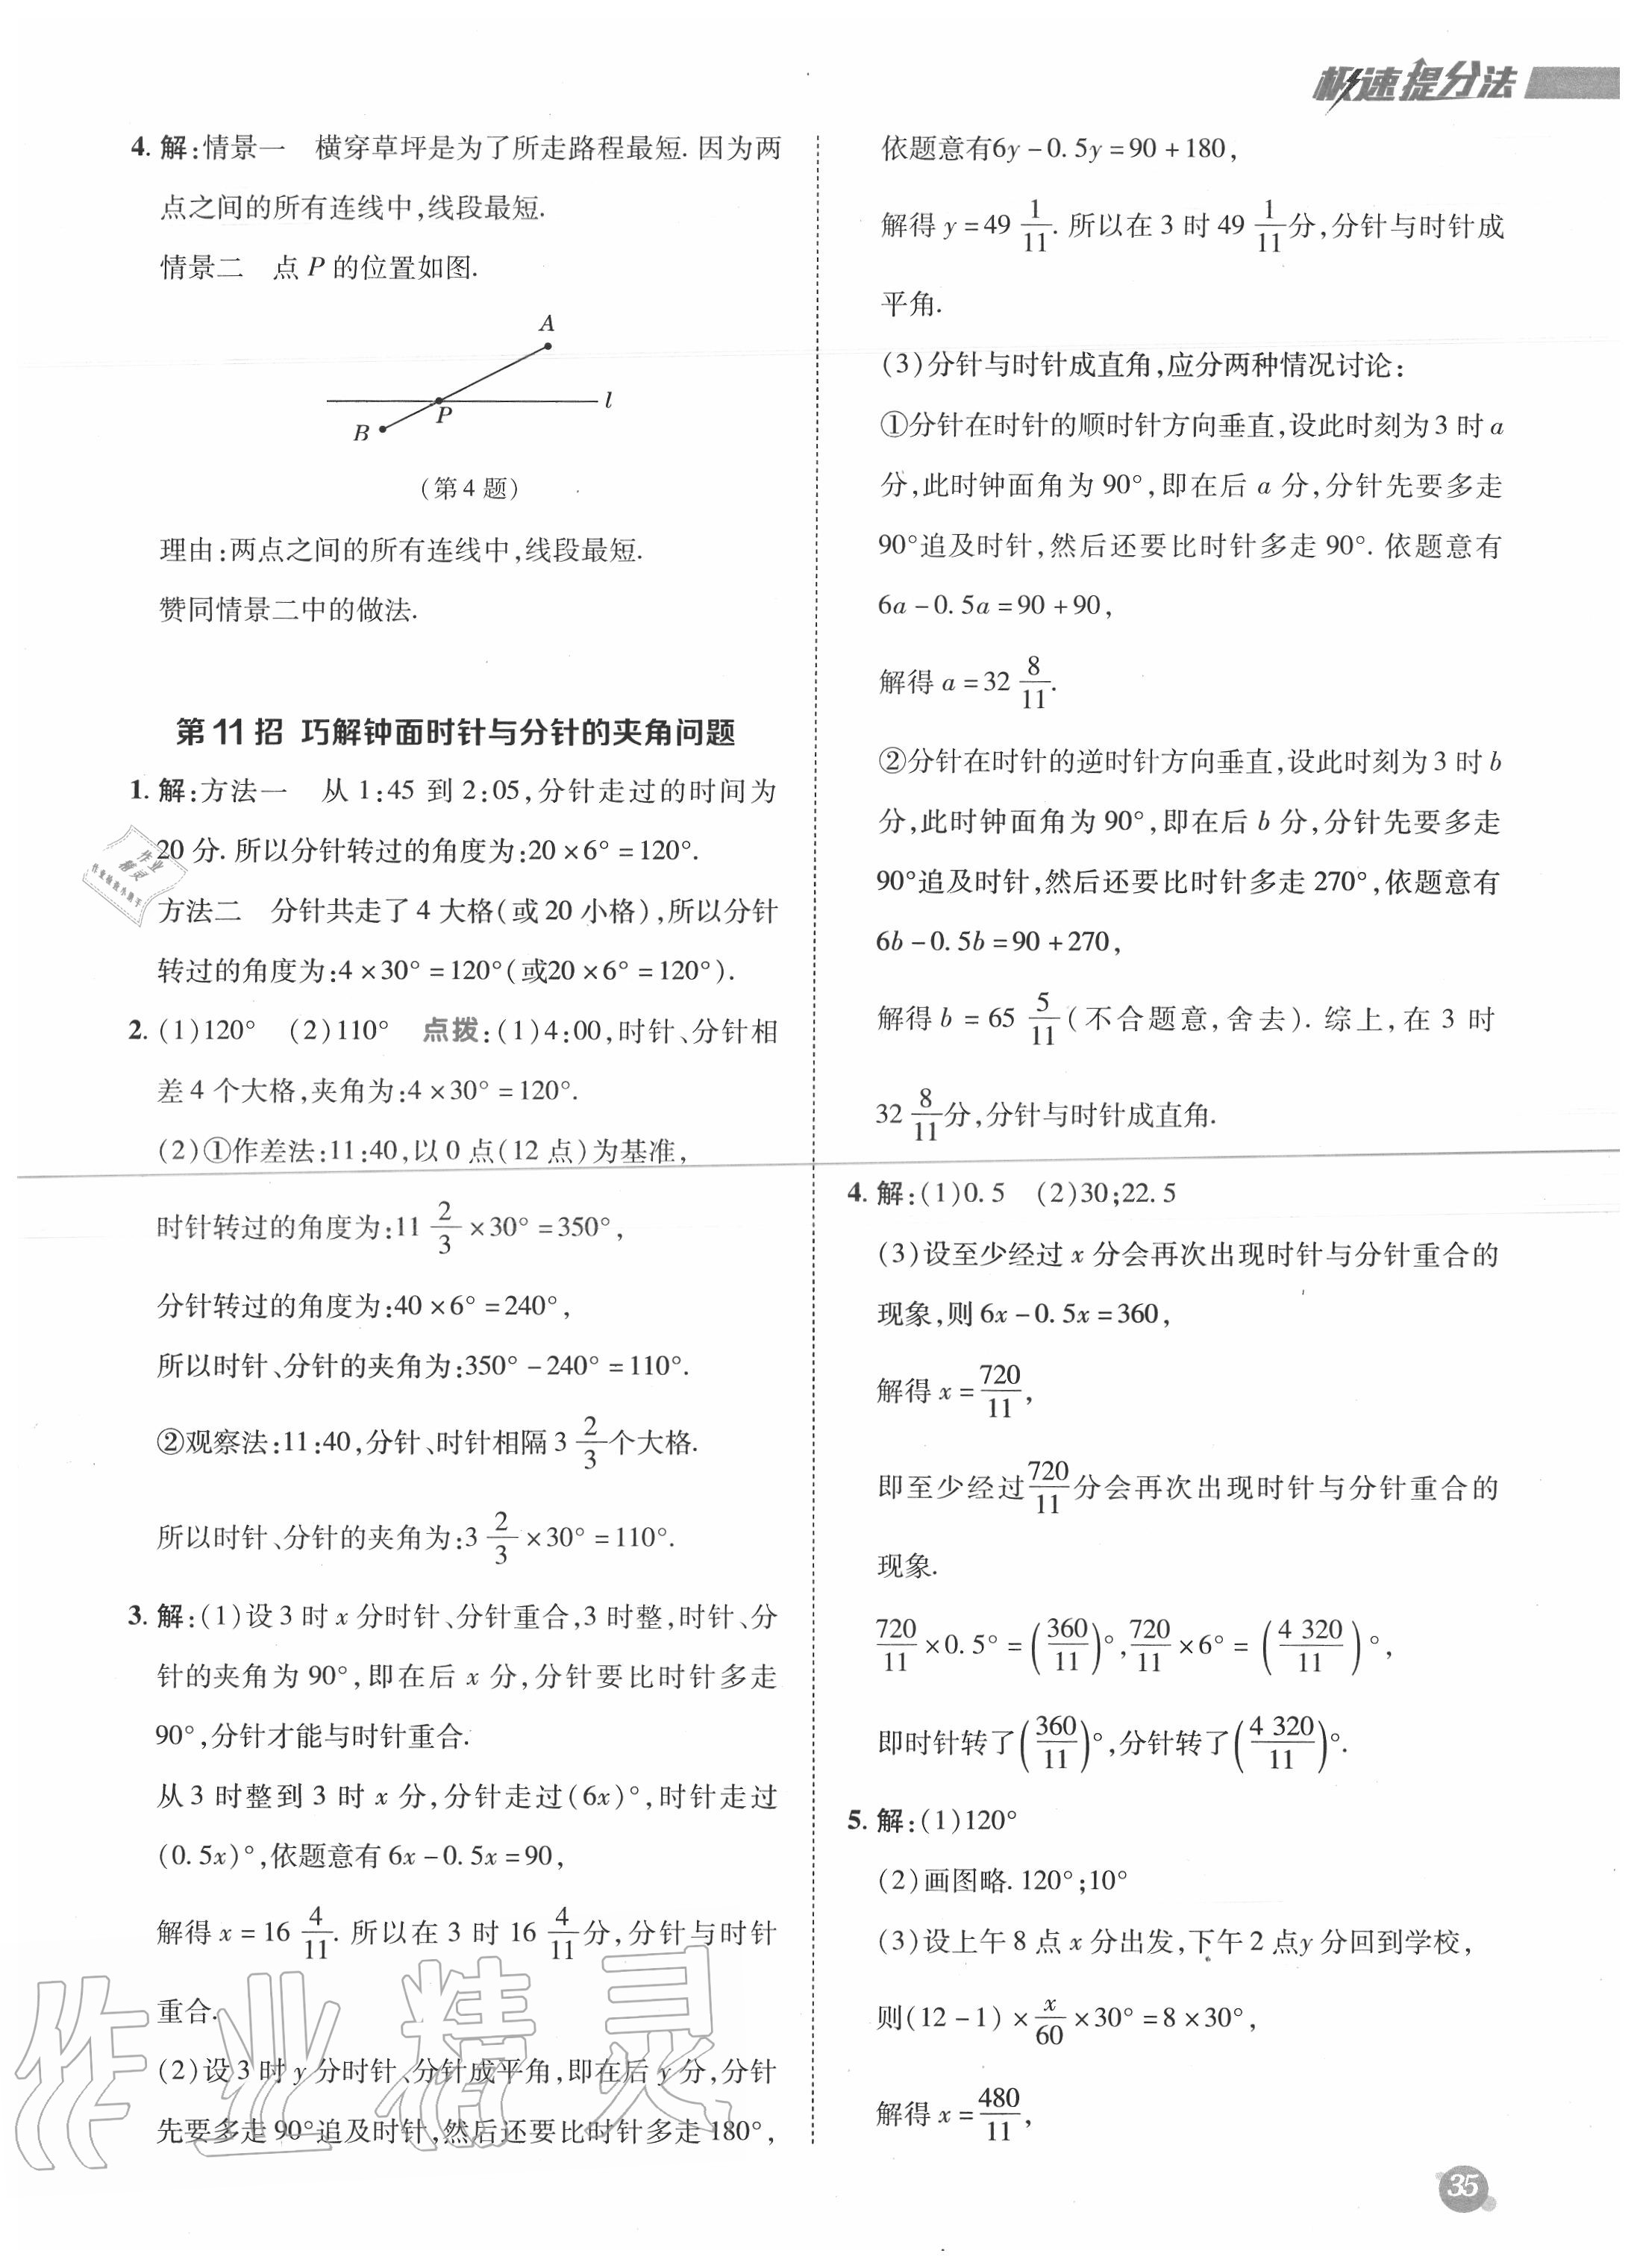 极速提分法
4. 解:情景一　横穿草坪是为了所走路程最短. 因为两
点之间的所有连线中,线段最短.
情景二　点 P 的位置如图.
A
l
P
B
(第4题)
理由:两点之间的所有连线中,线段最短.
赞同情景二中的做法.
第 11 招 巧解钟面时针与分针的夹角问题
1. 解:方法一　从 1:45 到 2:05,分针走过的时间为
20 分. 所以分针转过的角度为:20×6°=120°.
方法二　分针共走了 4 大格(或 20 小格),所以分针
转过的角度为:4×30°=120°(或20×6°=120°).
2. (1)120°　(2)110°　点拨:(1)4:00,时针、分针相
差 4 个大格,夹角为:4×30°=120°.
(2)①作差法:11:40,以 0 点(12 点)为基准,
时针转过的角度为:11 2/3 ×30°=350°,
分针转过的角度为:40×6°=240°,
所以时针、分针的夹角为:350°-240°=110°.
②观察法:11:40,分针、时针相隔 3 2/3 个大格.
所以时针、分针的夹角为:3 2/3 ×30°=110°.
3. 解:(1)设 3 时 x 分时针、分针重合,3 时整,时针、分
针的夹角为 90°,即在后 x 分,分针要比时针多走
90°,分针才能与时针重合.
从 3 时整到 3 时 x 分,分针走过(6x)°,时针走过
(0.5x)°,依题意有 6x-0.5x=90,
解得 x=16 4/11. 所以在 3 时 16 4/11 分,分针与时针
重合.
(2)设 3 时 y 分时针、分针成平角,即在后 y 分,分针
先要多走 90°追及时针,然后还要比时针多走 180°,
依题意有6y-0.5y=90+180,
解得 y=49 1/11. 所以在 3 时 49 1/11 分,分针与时针成
平角.
(3)分针与时针成直角,应分两种情况讨论:
①分针在时针的顺时针方向垂直,设此时刻为 3 时 a
分,此时钟面角为 90°,即在后 a 分,分针先要多走
90°追及时针,然后还要比时针多走 90°. 依题意有
6a-0.5a=90+90,
解得 a=32 8/11.
②分针在时针的逆时针方向垂直,设此时刻为 3 时 b
分,此时钟面角为 90°,即在后 b 分,分针先要多走
90°追及时针,然后还要比时针多走 270°,依题意有
6b-0.5b=90+270,
解得 b=65 5/11 (不合题意,舍去). 综上,在 3 时
32 8/11 分,分针与时针成直角.
4. 解:(1)0.5　(2)30;22.5
(3)设至少经过 x 分会再次出现时针与分针重合的
现象,则 6x-0.5x=360,
解得 x=720/11,
即至少经过 720/11 分会再次出现时针与分针重合的
现象.
720/11 ×0.5°=(360/11)°,720/11 ×6°=(4 320/11)°,
即时针转了(360/11)°,分针转了(4 320/11)°.
5. 解:(1)120°
(2)画图略. 120°;10°
(3)设上午 8 点 x 分出发,下午 2 点y 分回到学校,
则(12-1)× x/60 ×30°=8×30°,
解得 x=480/11,
35
作业精灵
作业精灵